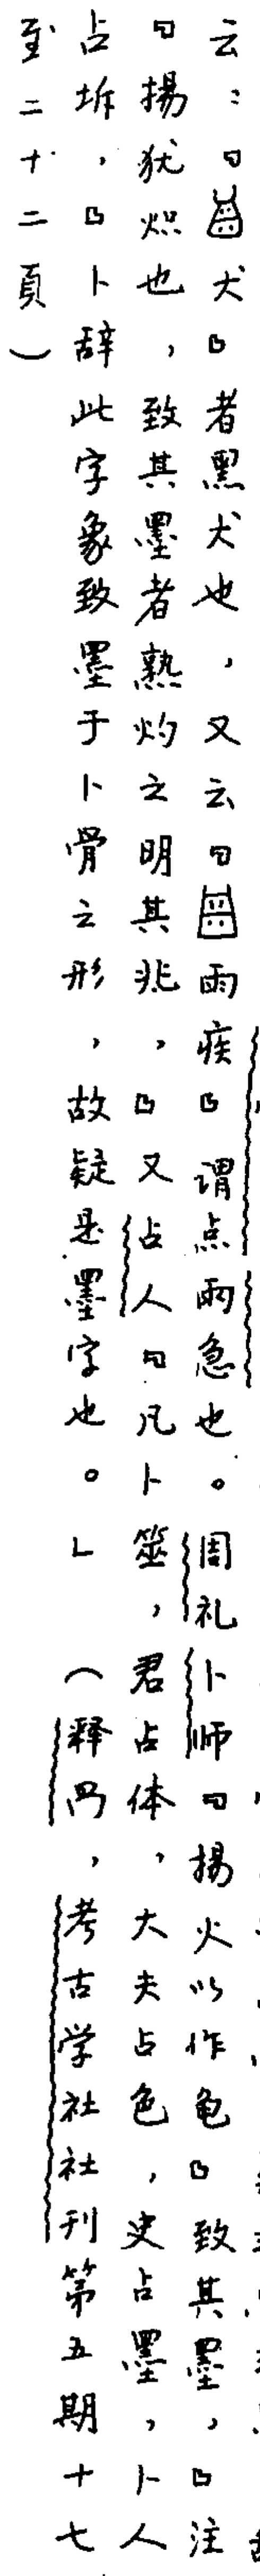 云：『犬』者黑犬也，又云『雨疾』谓点雨急也。周礼卜师『揚火以作龟』致其墨，』注
『揚犹炽也，致其墨者熟灼之明其兆，』又占人『凡卜筮，君占体，大夫占色，史占墨，卜人
占坼，』卜辞此字象致墨于卜骨之形，故疑是墨字也。」（释冎，考古学社社刊第五期十七
至二十二頁）